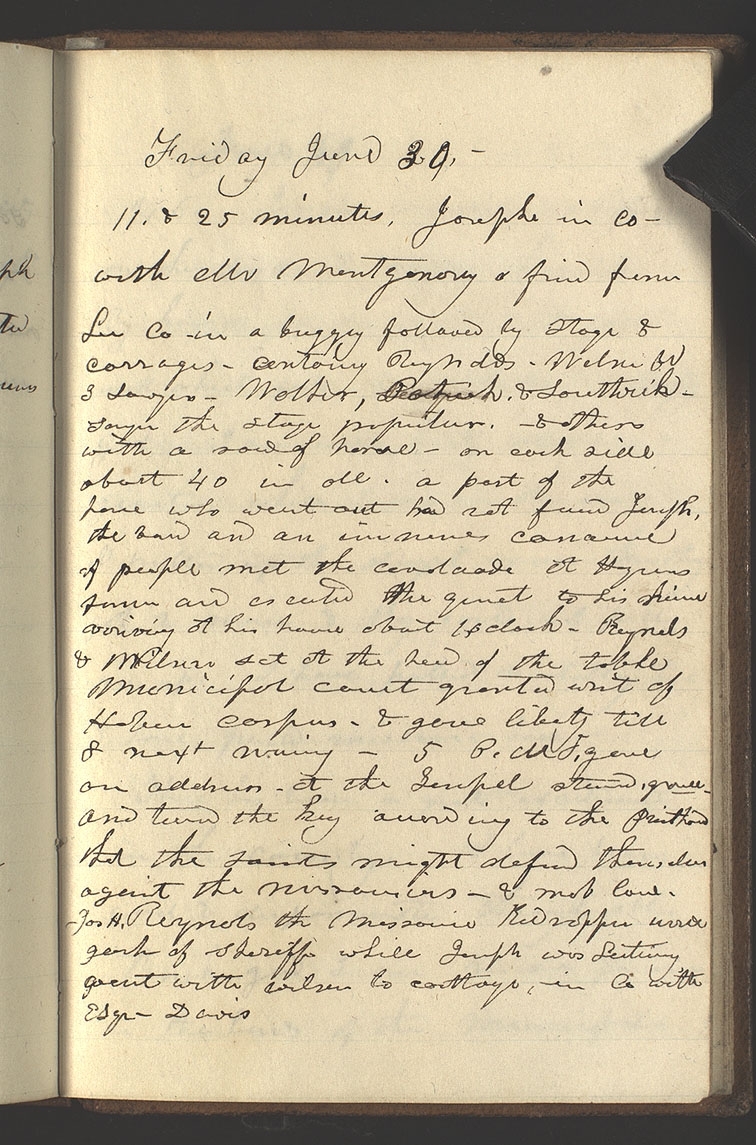 Friday June 30. -
11. & 25 minutes. Joseph in co-
with Mr Montgomery & friend from
Lee Co - in a buggy followed by stage &
carrages - containing Reynolds - Wilson &
3 Lawyers - Walker, Patrick. & Southwick -
the stage propiter. - & others
with a row of horse - on each side
about 40 in all. a part of the
posse who went out had not found Joseph,
the band and an immense concourse
of people met the cavalcade at Hyrums
farm and escorted the guest to his home
arriving at his house about 1 oclock - Reynolds
& Wilson set at the head of the table
Municipal court granted writ of
Habeus corpus - & gave liberty till
8 next morning - 5 P. M J. gave
an address - at the Temple stand, grove -
and turnd the key according to the Priesthood
that the saints might defend themselves
against the missourians - & mob law.
Jos H. Reynolds the Missouri Kidnapper
of sheriff while Joseph was
went with wilson to carthage, in Co with
Esqr - Davis